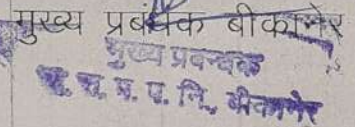 मुख्य प्रबंधक बीकानेर
मुख्य प्रबन्धक
रा. रा. प. प. नि., बीकानेर